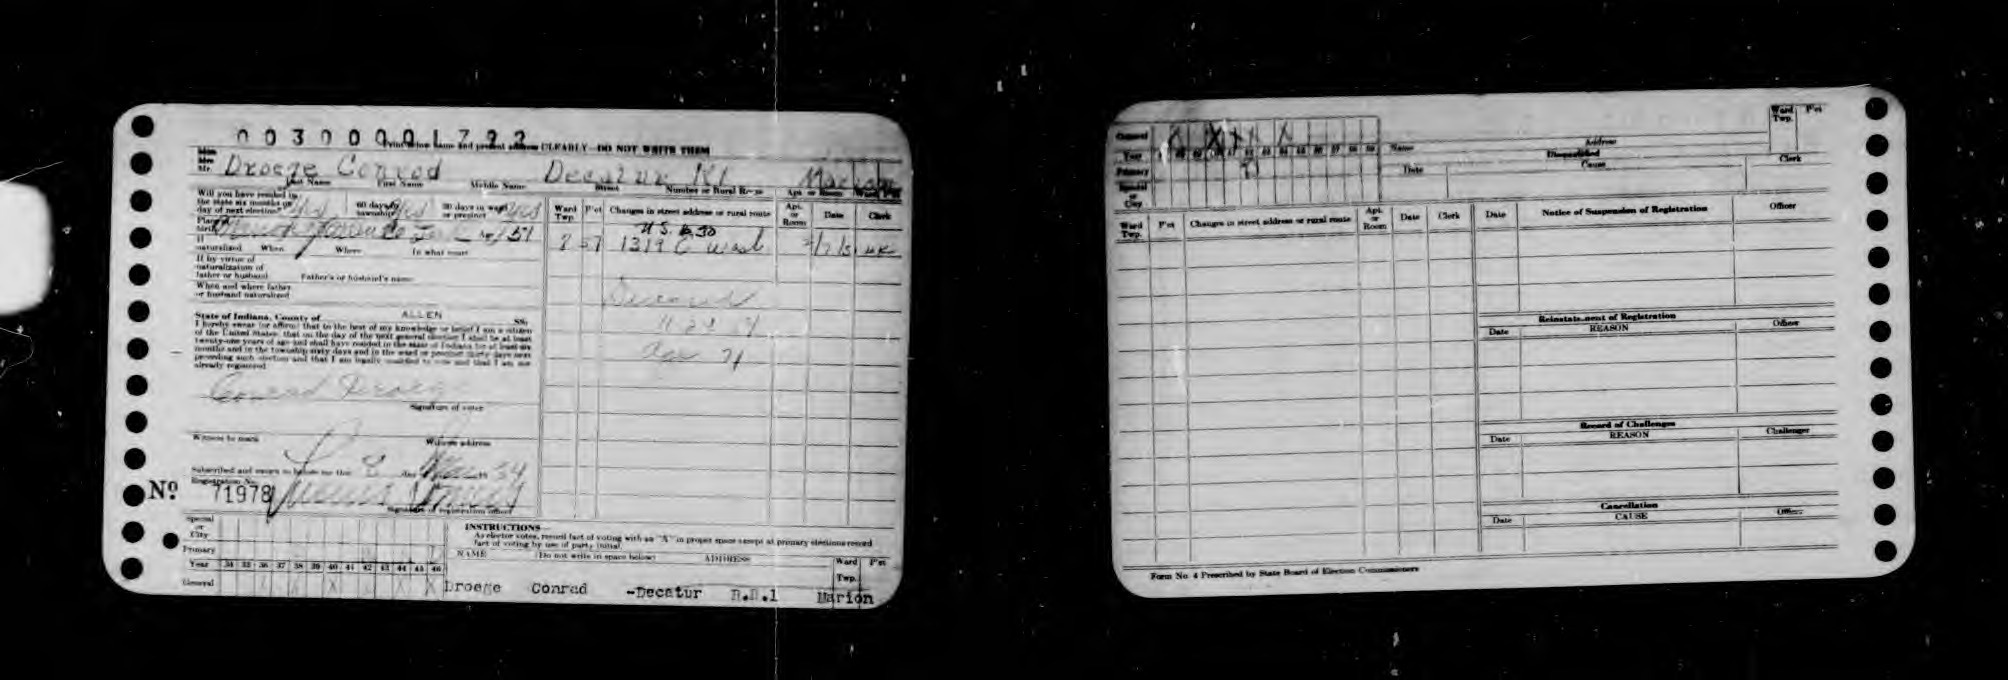 00300001722
Print below name and present address CLEARLY—DO NOT WRITE THEM
Miss
Mrs.
Mr. Droege Conrad Decatur R1 Marion
Last Name First Name Middle Name Street Number or Rural Route Apt. or Room Ward P'ct
Will you have resided in the state six months on day of next election? Yes 60 days in township? Yes 30 days in ward or precinct? Yes
Place of birth Age 51
If naturalized When Where In what court
If by virtue of naturalization of father or husband Father's or husband's name
When and where father or husband naturalized
State of Indiana, County of ALLEN SS:
I hereby swear (or affirm) that to the best of my knowledge or belief I am a citizen
of the United States; that on the day of the next general election I shall be at least
twenty-one years of age and shall have resided in the state of Indiana for at least six
months and in the township sixty days and in the ward or precinct thirty days next
preceding such election and that I am legally qualified to vote and that I am not
already registered
Conrad Droege
Signature of voter
Witness to mark Witness address
Subscribed and sworn to before me this 8 day 19 34
Registration No.
Nº 71978
Signature of registration officer
Ward Twp. P'ct Changes in street address or rural route Apt. or Room Date Clerk
1319
Deceased
Age 71
Special or City
Primary
Year 34 35 36 37 38 39 40 41 42 43 44 45 46
General X X X X
INSTRUCTIONS—
As elector votes, record fact of voting with an "A" in proper space except at primary elections record
fact of voting by use of party initial.
NAME (Do not write in space below) ADDRESS Ward Twp. P'ct
Droege Conrad -Decatur R.R.1 Marion
General
Year
Primary
Special or City
Name Address Ward Twp. P'ct
Disqualified
Date Cause Clerk
Ward Twp. P'ct Changes in street address or rural route Apt. or Room Date Clerk
Date Notice of Suspension of Registration Officer
Reinstatement of Registration
Date REASON Officer
Record of Challenges
Date REASON Challenger
Cancellation
Date CAUSE Officer
Form No. 4 Prescribed by State Board of Election Commissioners